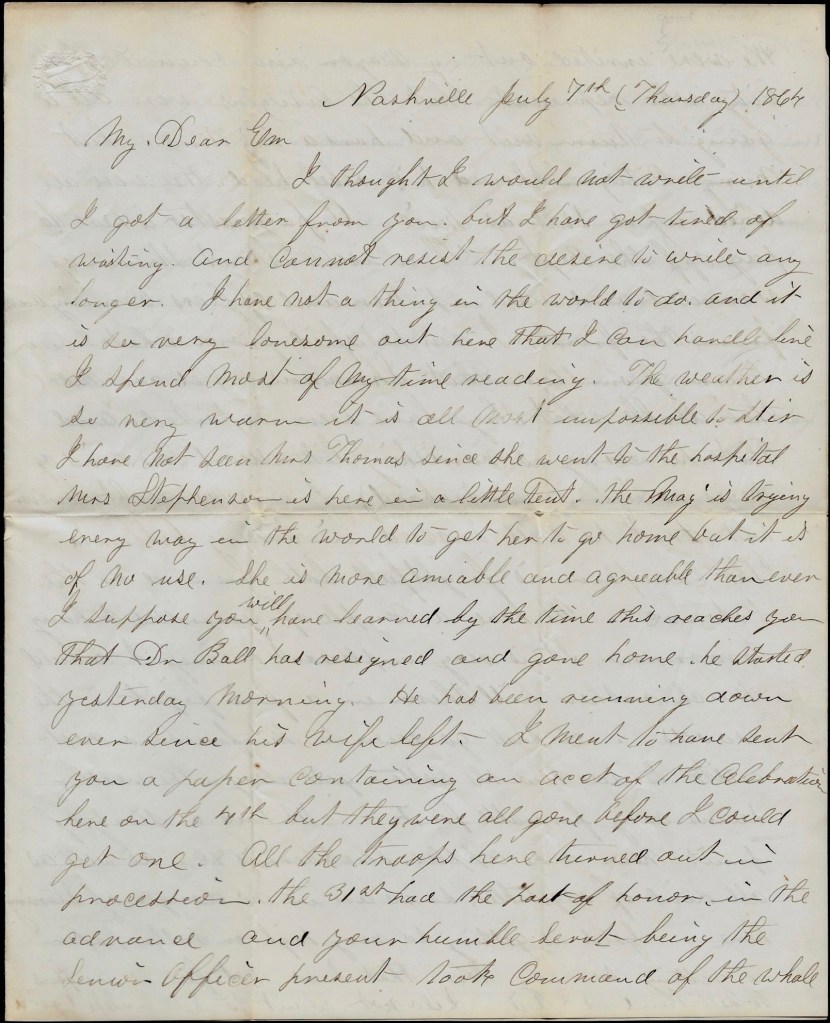 Nashville July 7th (Thursday) 1864
My Dear Em
I thought I would not write until
I got a letter from you. but I have got tired of
waiting. and cannot resist the desire to write any
longer. I have not a thing in the world to do. and it
is so very lonesome out here that I can hardly live
I spend most of my time reading. The weather is
so very warm it is all most impossible to stir
I have not seen Mrs Thomas since she went to the hospital
Mrs Stephenson is here in a little tent. the Maj is trying
every way in the world to get her to go home but it is
of no use. She is more amiable and agreeable than ever
I suppose you will have learned by the time this reaches you
that Dr Ball has resigned and gone home. he started
yesterday morning. He has been running down
ever since his wife left. I ment to have sent
you a paper containing an acct of the Celebration
here on the 4th but they were all gone before I could
get one. All the troops here turned out in
procession. the 31st had the post of honor. in the
advance and your humble servt being the
Senior Officer present took Command of the whole